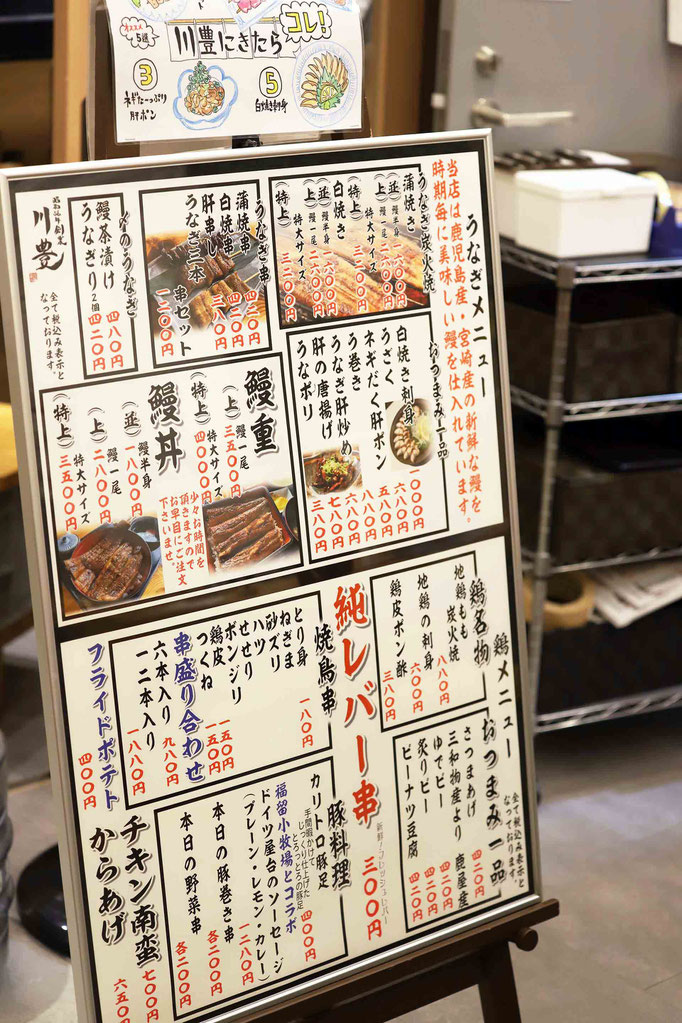 川豊にきたら
コレ!
オススメ
5選
③
ネギたーっぷり
肝ポン
⑤
白焼き刺身
うなぎメニュー
当店は鹿児島産・宮崎産の新鮮な鰻を
時期毎に美味しい鰻を仕入れています。
うなぎ炭火焼
蒲焼き
(並) 鰻半身 一六〇〇円
(上) 鰻一尾 二六〇〇円
(特上) 特大サイズ 三二〇〇円
白焼き
(並) 鰻半身 一六〇〇円
(上) 鰻一尾 二六〇〇円
(特上) 特大サイズ 三二〇〇円
うなぎ串
蒲焼串 四三〇円
白焼串 四二〇円
肝串し 四〇〇円
うなぎ三本串セット 一二〇〇円
〆のうなぎ
鰻茶漬け 四八〇円
うなぎり2個 四二〇円
川豊
全て税込み表示と
なっております。
おつまみ一品
白焼き刺身 一〇〇〇円
うざく 六八〇円
ネギだく肝ポン 五八〇円
う巻き 八八〇円
うなぎ肝炒め 六八〇円
肝の唐揚げ 七八〇円
うなポリ 三八〇円
鰻重
(上) 鰻一尾 三五〇〇円
(特上) 特大サイズ 四〇〇〇円
鰻丼
(並) 鰻半身 一八〇〇円
(上) 鰻一尾 二八〇〇円
(特上) 特大サイズ 三五〇〇円
少々お時間を
頂きますので
お早目にご注文
下さいませ。
鶏メニュー
全て税込み表示と
なっております。
鶏名物
地鶏もも炭火焼 八八〇円
地鶏の刺身 六〇〇円
鶏皮ポン酢 三八〇円
おつまみ一品
さつまあげ 四二〇円
三和物産より 鹿屋産
ゆでピー 四二〇円
炙りピー 四二〇円
ピーナツ豆腐 四二〇円
純レバー串
新鮮!フレッシュレバー
三〇〇円
焼鳥串
とり身
ねぎま
砂ズリ 一八〇円
ハツ
せせり
ボンジリ
鶏皮 一五〇円
つくね 一五〇円
串盛り合わせ
六本入り 九八〇円
一二本入り 一八八〇円
フライドポテト
四〇〇円
豚料理
カリトロ豚足
手間暇かけて
じっくり仕上げた
とろっとろの豚足
四〇〇円
福留小牧場とコラボ
ドイツ屋台のソーセージ
(プレーン・レモン・カレー)
一二八〇円
本日の豚巻き串 各二〇〇円
本日の野菜串 各二〇〇円
チキン南蛮 七〇〇円
からあげ 六五〇円